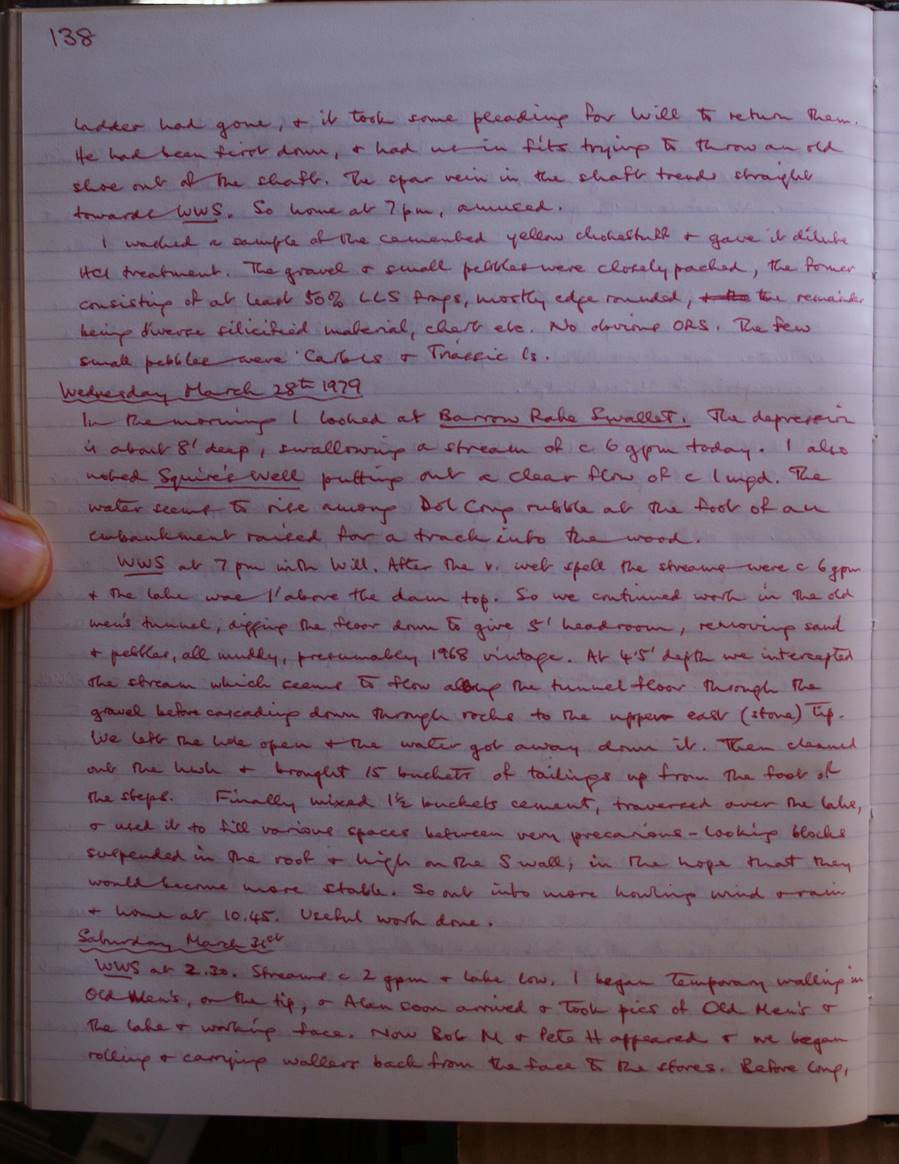 138
ladder had gone, + it took some pleading for Will to return them.
He had been first down, + had us in fits trying to throw an old
shoe out of the shaft. The spar vein in the shaft trends straight
towards WWS. So home at 7pm, amused.
I washed a sample of the cemented yellow chokestuff + gave it dilute
HCl treatment. The gravel + small pebbles were closely packed, the former
consisting of at least 50% LLS frags, mostly edge rounded, the remainder
being diverse silicified material, chert etc. No obvious ORS. The few
small pebbles were Carb Ls + Triassic ls.
Wednesday March 28th 1979
In the morning I looked at Barrow Rake Swallet. The depression
is about 8' deep, swallowing a stream of c 6 gpm today. I also
noted Squire's Well putting out a clear flow of c 1 mgd. The
water seems to rise among Dol Cong rubble at the foot of an
embankment raised for a track into the wood.
WWS at 7pm with Will. After the v. wet spell the streams were c 6gpm
+ the lake was 1' above the dam top. So we continued work in the old
men's tunnel, digging the floor down to give 5' headroom, removing sand
+ pebbles, all muddy, presumably 1968 vintage. At 4'5' depth we intercepted
the stream which seems to flow along the tunnel floor through the
gravel before cascading down through rocks to the upper east (stone) tip.
We left the hole open + the water got away down it. Then cleaned
out the hush + brought 15 buckets of tailings up from the foot of
the steps. Finally mixed 1½ buckets cement, traversed over the lake,
+ used it to fill various spaces between very precarious-looking blocks
suspended in the roof + high on the S wall, in the hope that they
would become more stable. So out into more howling wind + rain
+ home at 10.45. Useful work done.
Saturday March 31st
WWS at 2.30. Streams c 2 gpm + lake low. I began temporary walling in
Old Men's, on the tip, + Alan soon arrived + took pics of Old Men's +
the lake + working face. Now Bob M + Pete H appeared + we began
rolling + carrying wallers back from the face to the stores. Before long,